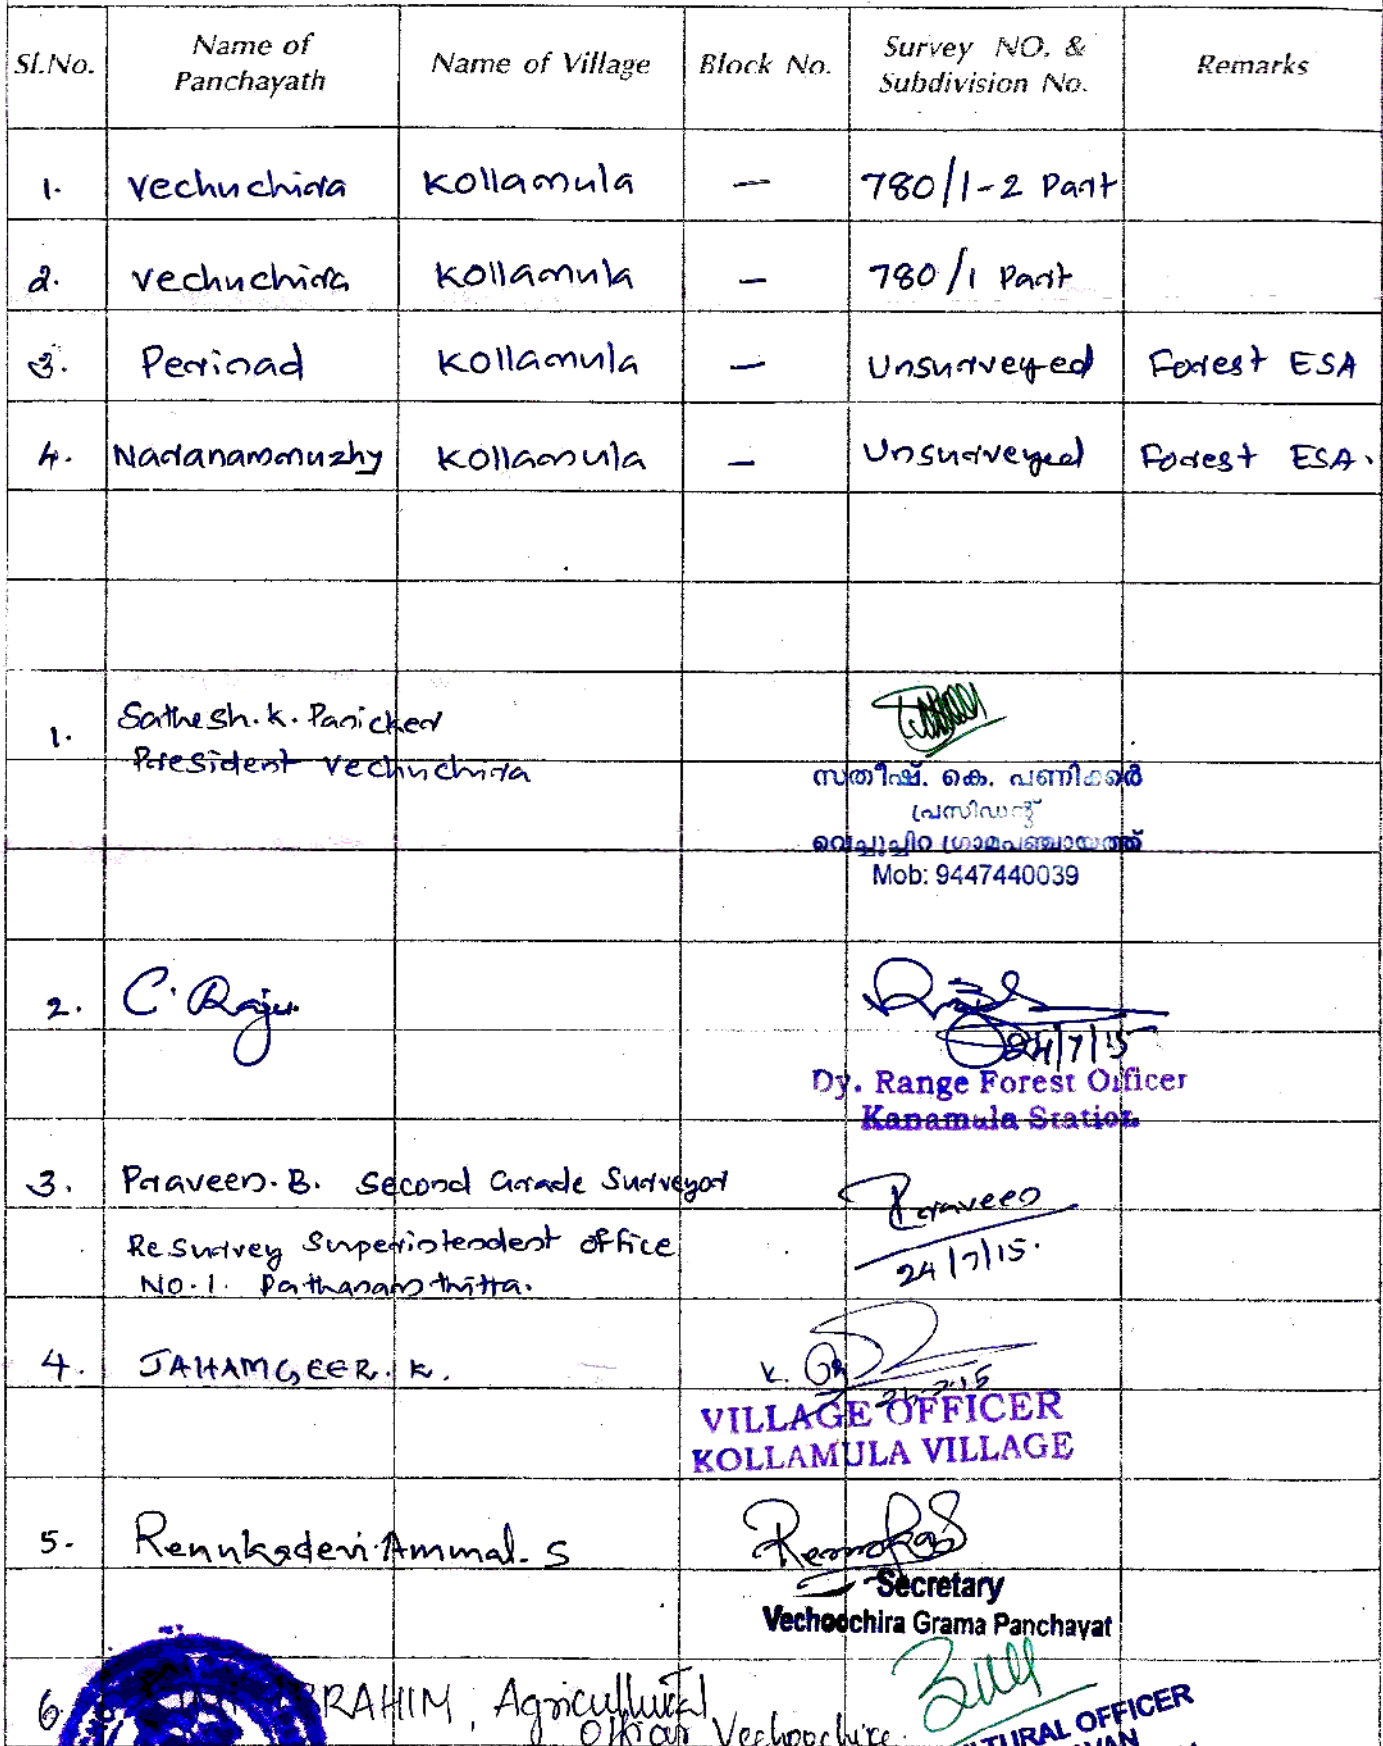 Sl.No. Name of Panchayath Name of Village Block No. Survey NO. & Subdivision No. Remarks
1. Vechuchira Kollamula — 780/1-2 Part
2. Vechuchira Kollamula — 780/1 Part
3. Perinad Kollamula — Unsurveyed Forest ESA
4. Naranammuzhy Kollamula — Unsurveyed Forest ESA.
1. Sathesh. K. Panicker
President Vechuchira
സതീഷ്. കെ. പണിക്കർ
പ്രസിഡന്റ്
വെച്ചൂച്ചിറ ഗ്രാമപഞ്ചായത്ത്
Mob: 9447440039
2. C. Raju
24/7/15
Dy. Range Forest Officer
Kanamula Station
3. Praveen. B. Second Grade Surveyor
Praveen
Resurvey Superintendent office
No. 1. Pathanamthitta.
24/7/15.
4. JAHAMGEER. K.
K.
VILLAGE OFFICER
KOLLAMULA VILLAGE
5. Renukadevi Ammal. S
Secretary
Vechoochira Grama Panchayat
6. BRAHIM, Agricultural
Officer Vechoochira.
TURAL OFFICER